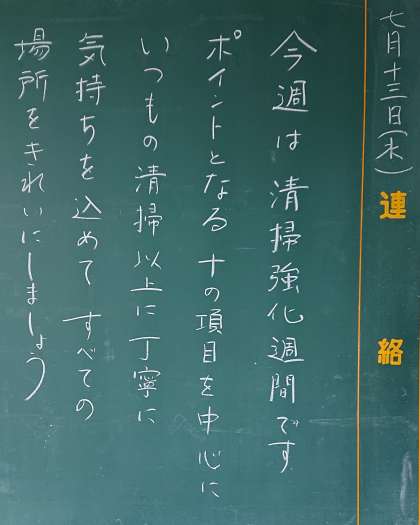 七月十三日(木)
連絡
今週は清掃強化週間です
ポイントとなる十の項目を中心に
いつもの清掃以上に丁寧に
気持ちを込めてすべての
場所をきれいにしましょう